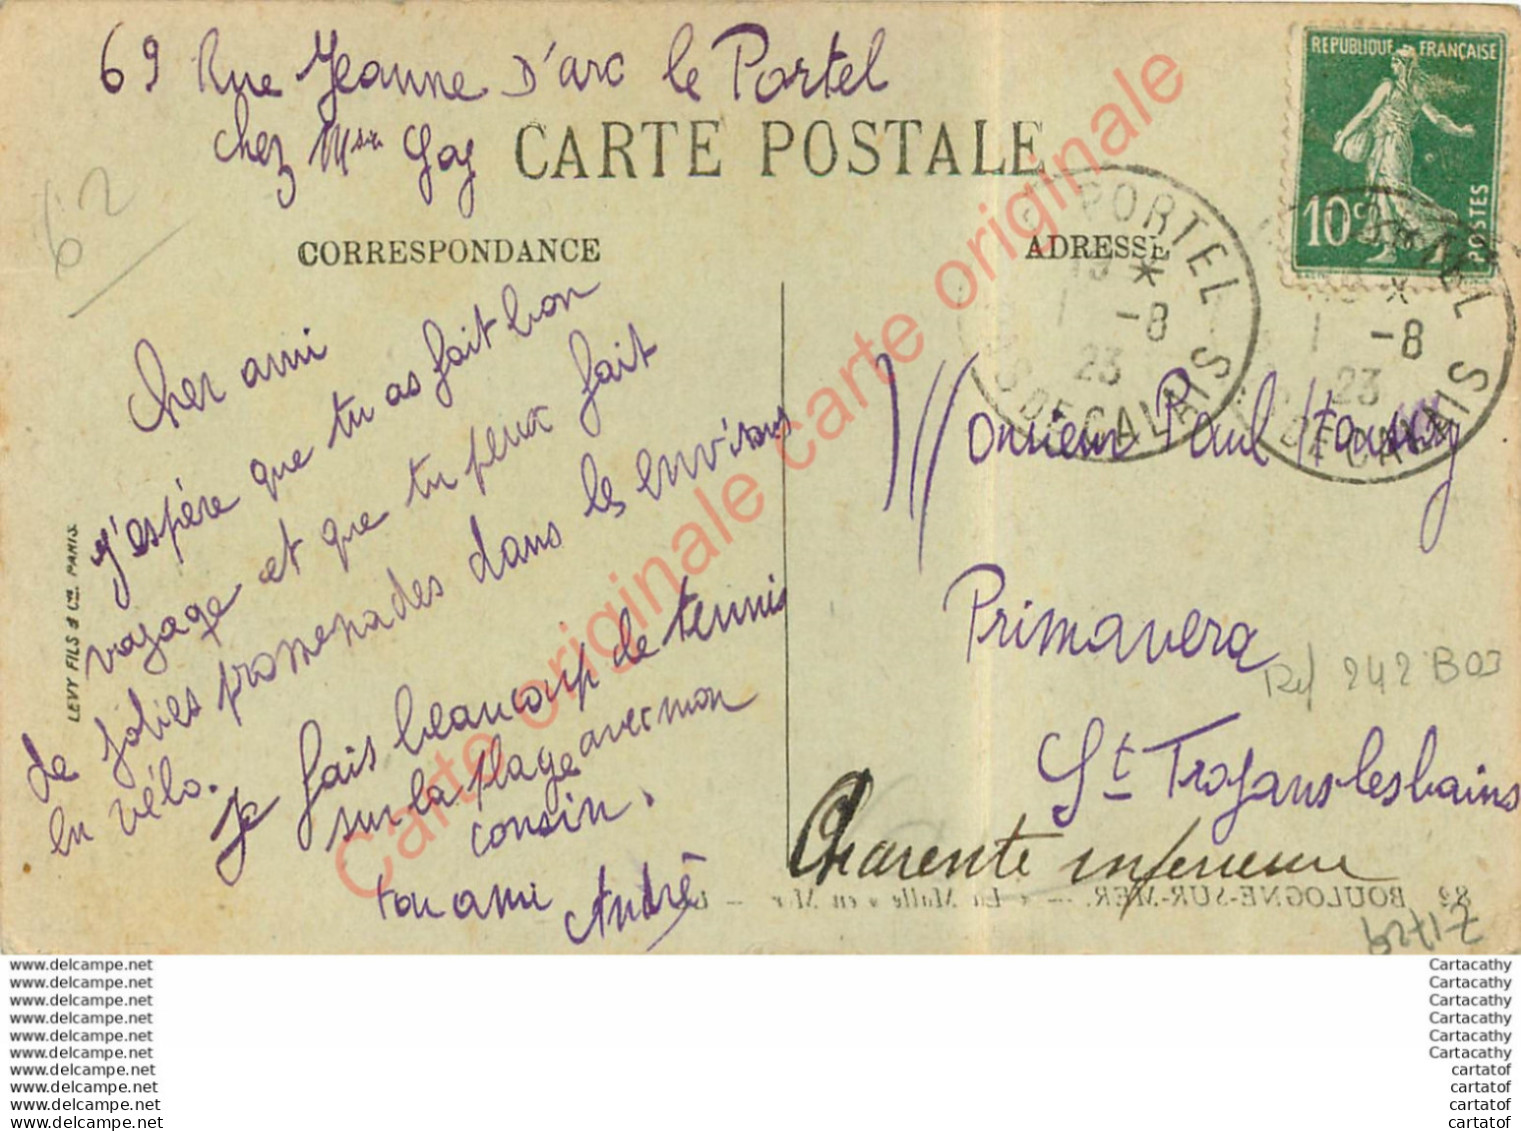 69 Rue Jeanne D'arc le Portel
chez Msin
CARTE POSTALE
62
CORRESPONDANCE
ADRESSE
REPUBLIQUE FRANÇAISE
10c
POSTES
PORTEL
* 1 -8
23
PAS DE CALAIS
-8
23
DE CALAIS
Cher ami
J'espère que tu as fait bon
voyage et que tu peux fait
de jolies promenades dans les environs
en vélo.
Je fais beaucoup de tennis
sur la plage avec mon
cousin.
ton ami André
Monsieur Paul
Primavera
Ref 242 B03
St Trojans les bains
Charente inferieure
LEVY FILS & Cie. PARIS.
82 BOULOGNE-SUR-MER. — « La Malle » en Mer
Carte originale carte originale
www.delcampe.net
www.delcampe.net
www.delcampe.net
www.delcampe.net
www.delcampe.net
www.delcampe.net
www.delcampe.net
www.delcampe.net
www.delcampe.net
www.delcampe.net
Cartacathy
Cartacathy
Cartacathy
Cartacathy
Cartacathy
Cartacathy
cartatof
cartatof
cartatof
cartatof